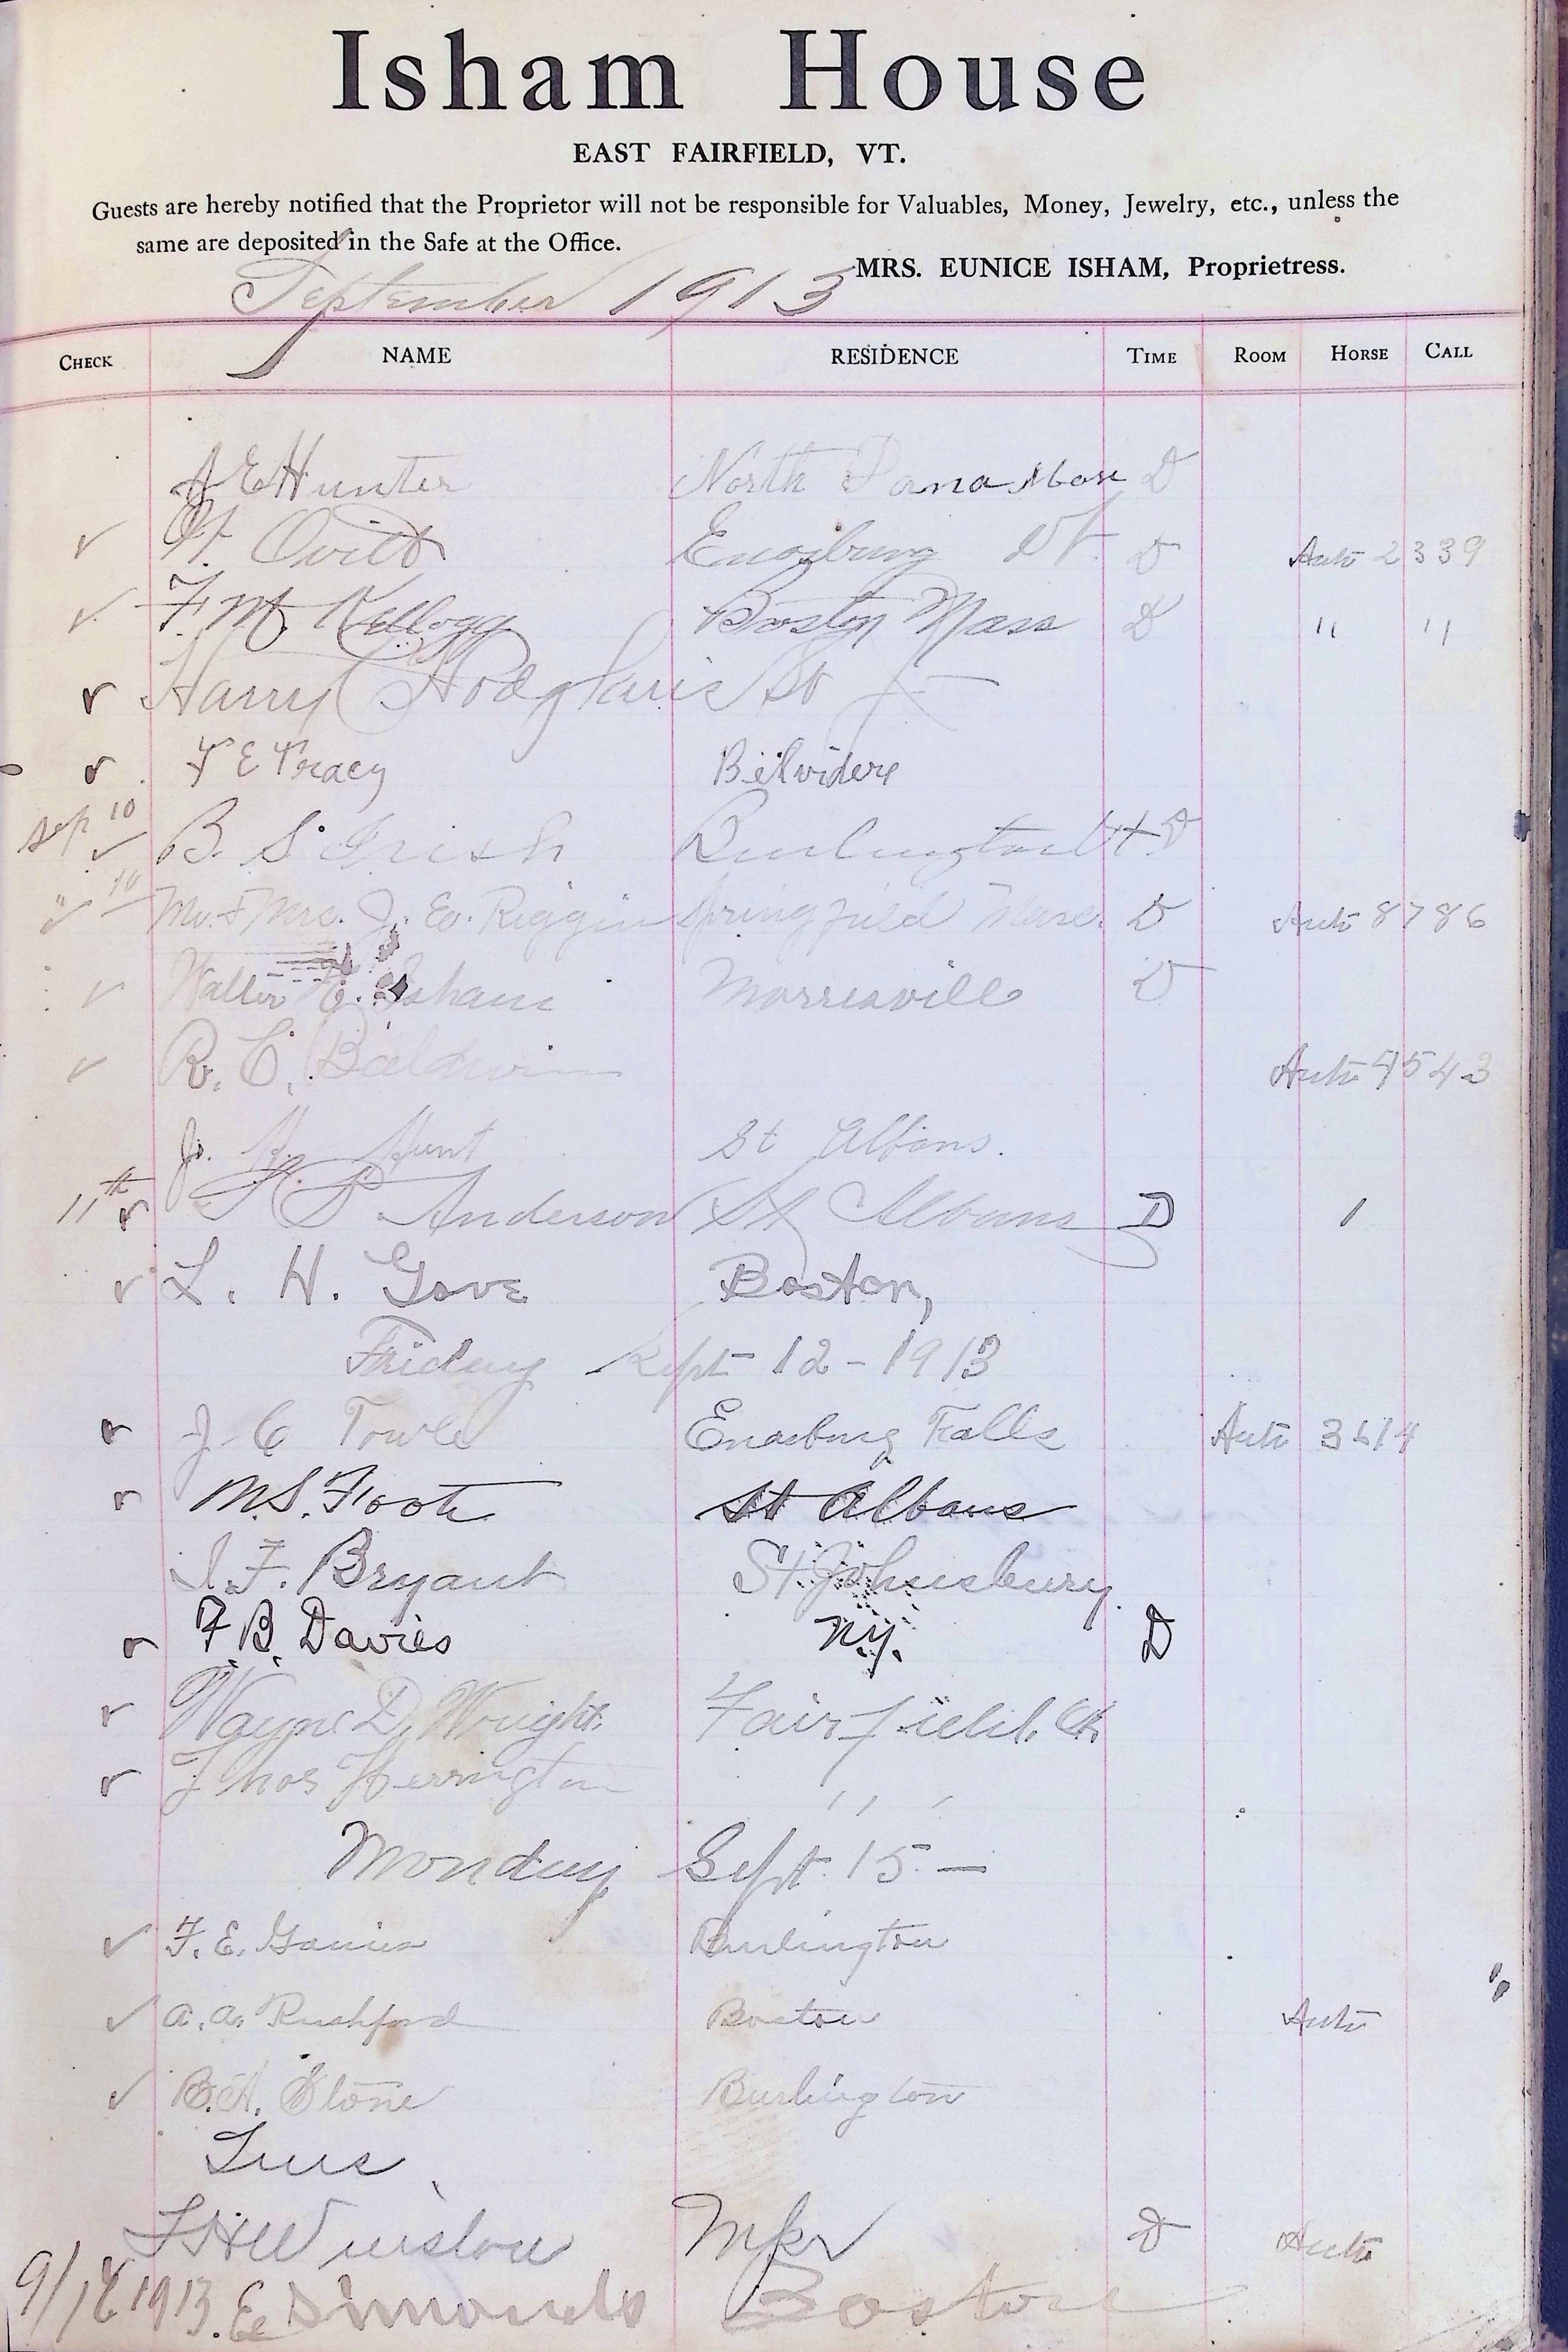 Isham House
EAST FAIRFIELD, VT.
Guests are hereby notified that the Proprietor will not be responsible for Valuables, Money, Jewelry, etc., unless the
same are deposited in the Safe at the Office.
MRS. EUNICE ISHAM, Proprietress.
September 1913
CHECK NAME RESIDENCE TIME ROOM HORSE CALL
A E Hunter North D
Ovitt Enosburg Vt. D Auto 2339
F. M. Kellogg Boston Mass D " "
Harry
F E Tracy Belvidere
Sep 10 B. S. Irish Burlington Vt. D
" 10 Mr. & Mrs. J. Ev. Riggin Springfield Mass. D Auto 8786
Walter E. Isham Morrisville D
R. C. Baldwin Auto 4543
J. H. Hunt St Albans.
11th Anderson St Albans D 1
L. H. Gove Boston,
Friday Sept 12 - 1913
J. C Towle Enosburg Falls Auto 3614
M. S. Foote St Albans
I. F. Bryant St. Johnsbury.
F. B. Davies N.Y. D
Wayne D. Wright. Fairfield. Vt.
Thos Herrington " "
Monday Sept. 15 —
F. E. Burlington
A. A. Rushford Boston Auto
B. A. Stone Burlington
Tues
F H Winslow D Auto
1913. E Simonds Boston